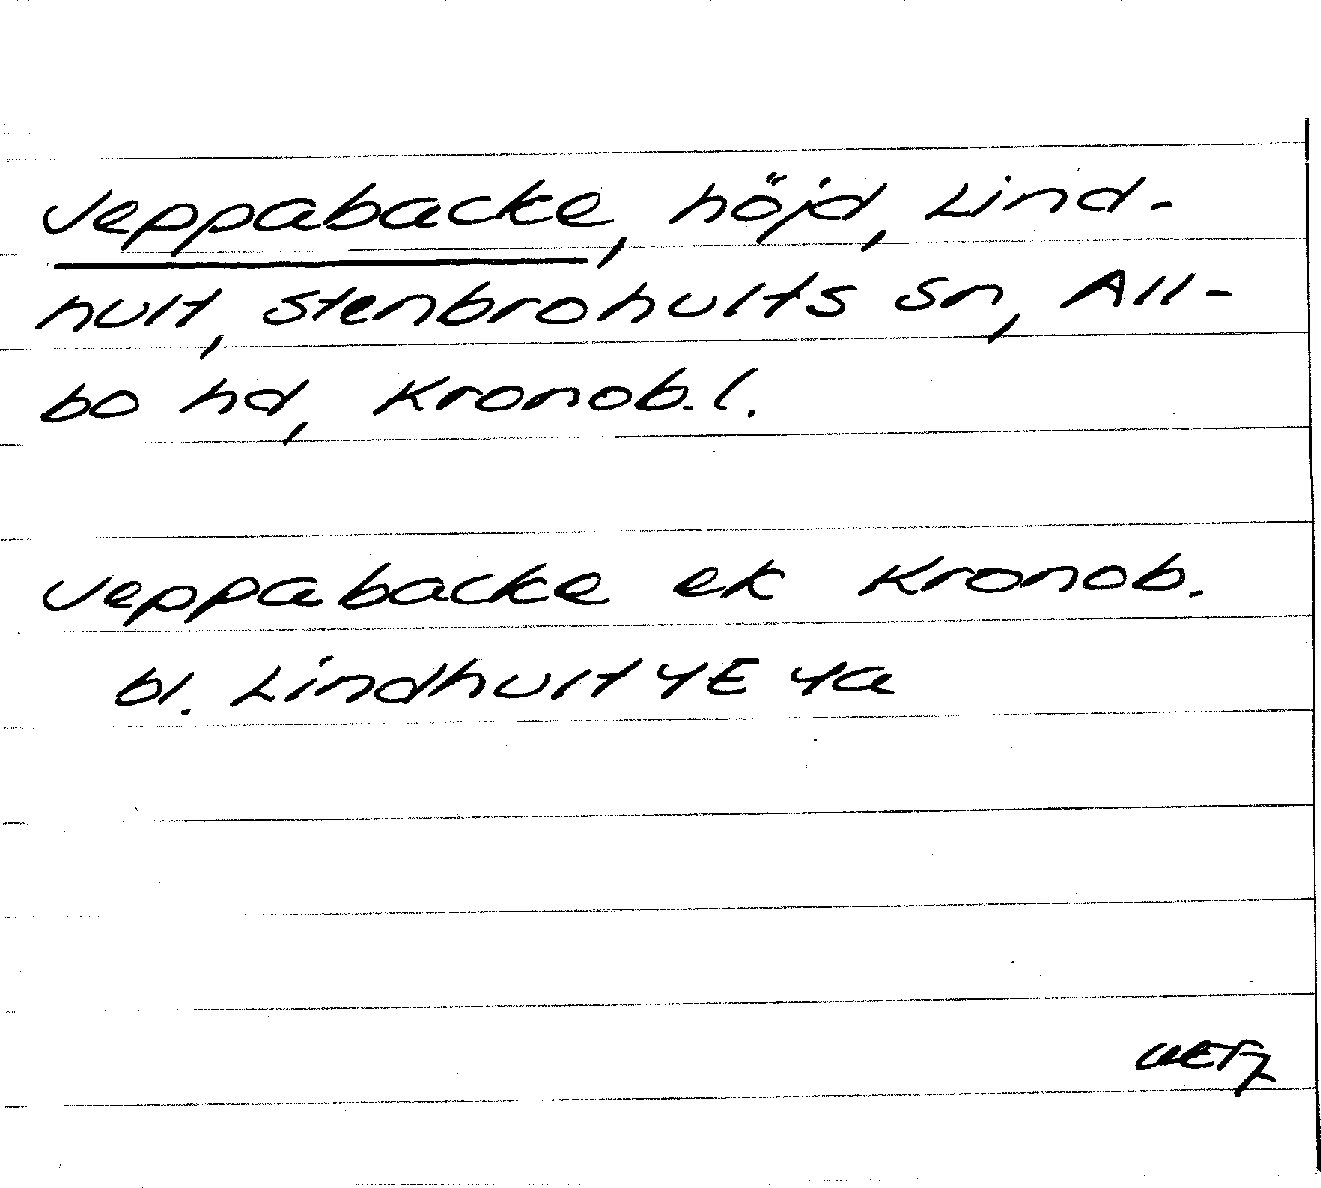 Jeppabacke, höjd, Lind-
hult, Stenbrohults sn, All-
bo hd, Kronob. l.
Jeppabacke ek Kronob.
bl. Lindhult 4E 4a